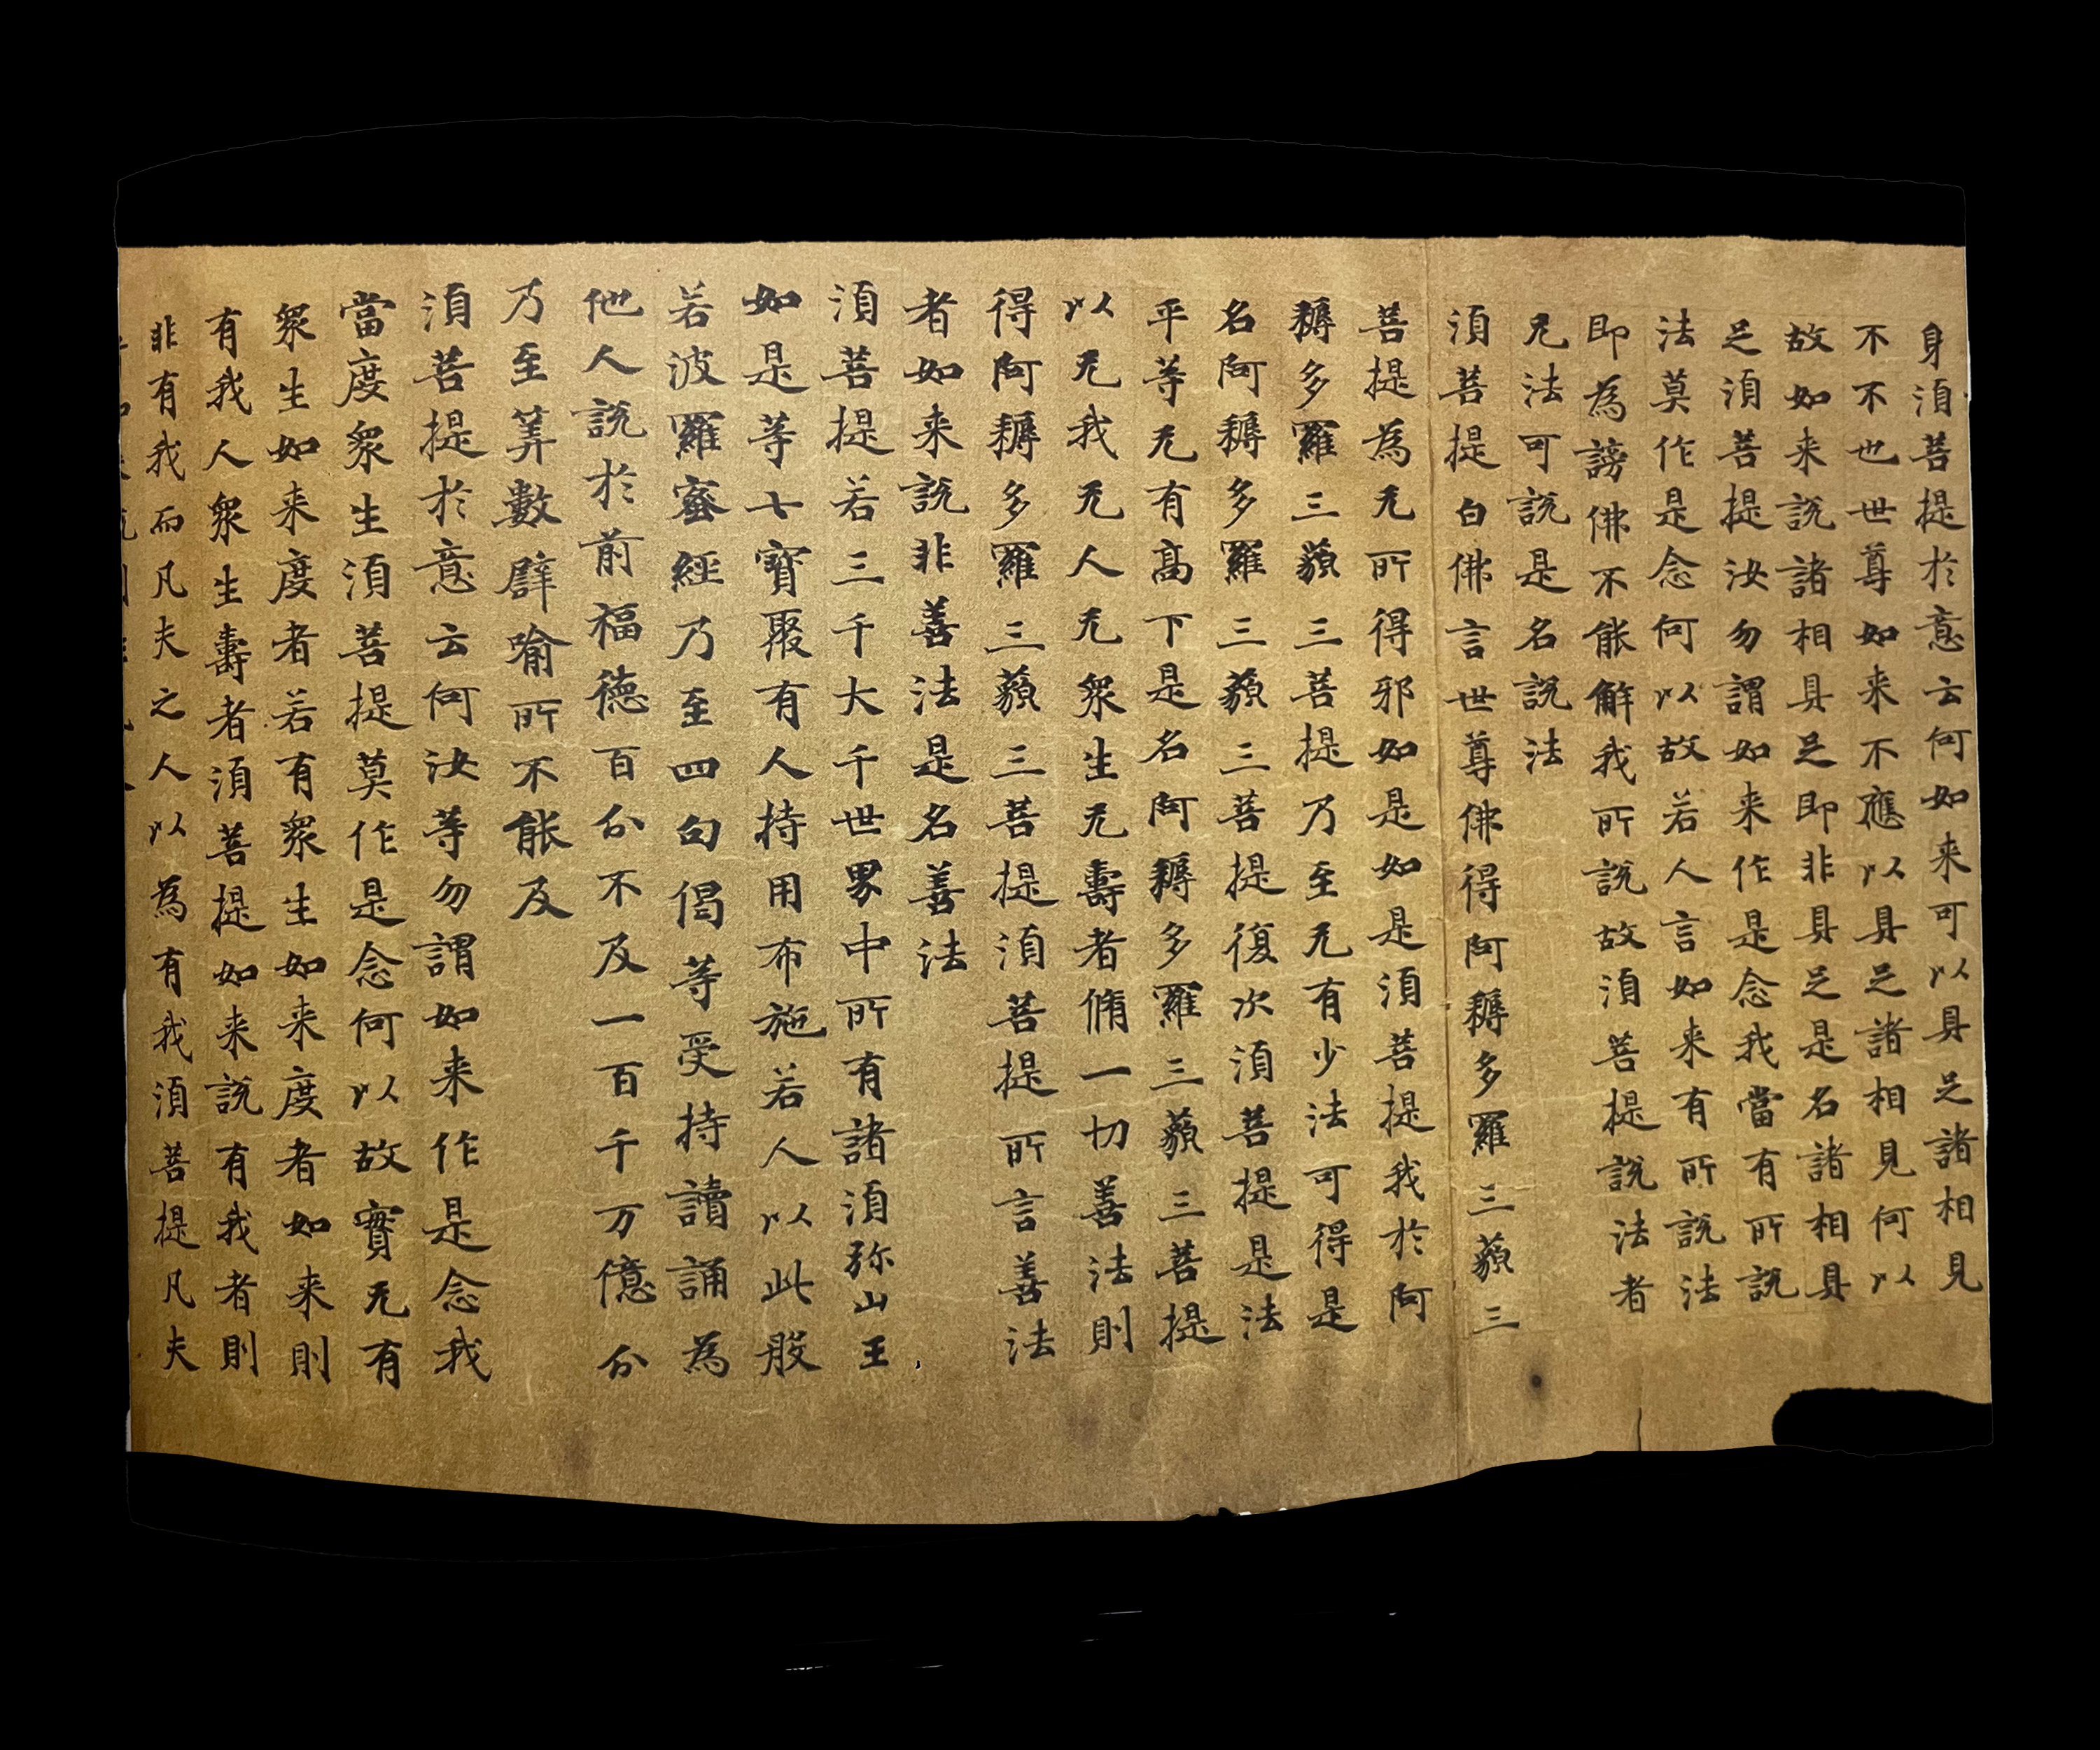 身湏菩提於意云何如来可以具足諸相見
不不也世尊如来不應以具足諸相見何以
故如来説諸相具足即非具足是名諸相具
足湏菩提汝勿謂如来作是念我當有所説
法莫作是念何以故若人言如来有所説法
即為謗佛不能解我所説故湏菩提説法者
无法可説是名説法
湏菩提白佛言世尊佛得阿耨多羅三藐三
菩提為无所得邪如是如是湏菩提我於阿
耨多羅三藐三菩提乃至无有少法可得是
名阿耨多羅三藐三菩提復次湏菩提是法
平等无有髙下是名阿耨多羅三藐三菩提
以无我无人无衆生无壽者脩一切善法則
得阿耨多羅三藐三菩提湏菩提所言善法
者如来説非善法是名善法
湏菩提若三千大千世界中所有諸湏弥山王
如是等七寳聚有人持用布施若人以此般
若波羅蜜經乃至四句偈等受持讀誦為
他人説於前福德百分不及一百千万億分
乃至筭數譬喻所不能及
湏菩提於意云何汝等勿謂如来作是念我
當度衆生湏菩提莫作是念何以故實无有
衆生如来度者若有衆生如来度者如来則
有我人衆生壽者湏菩提如来説有我者則
非有我而凡夫之人以為有我湏菩提凡夫